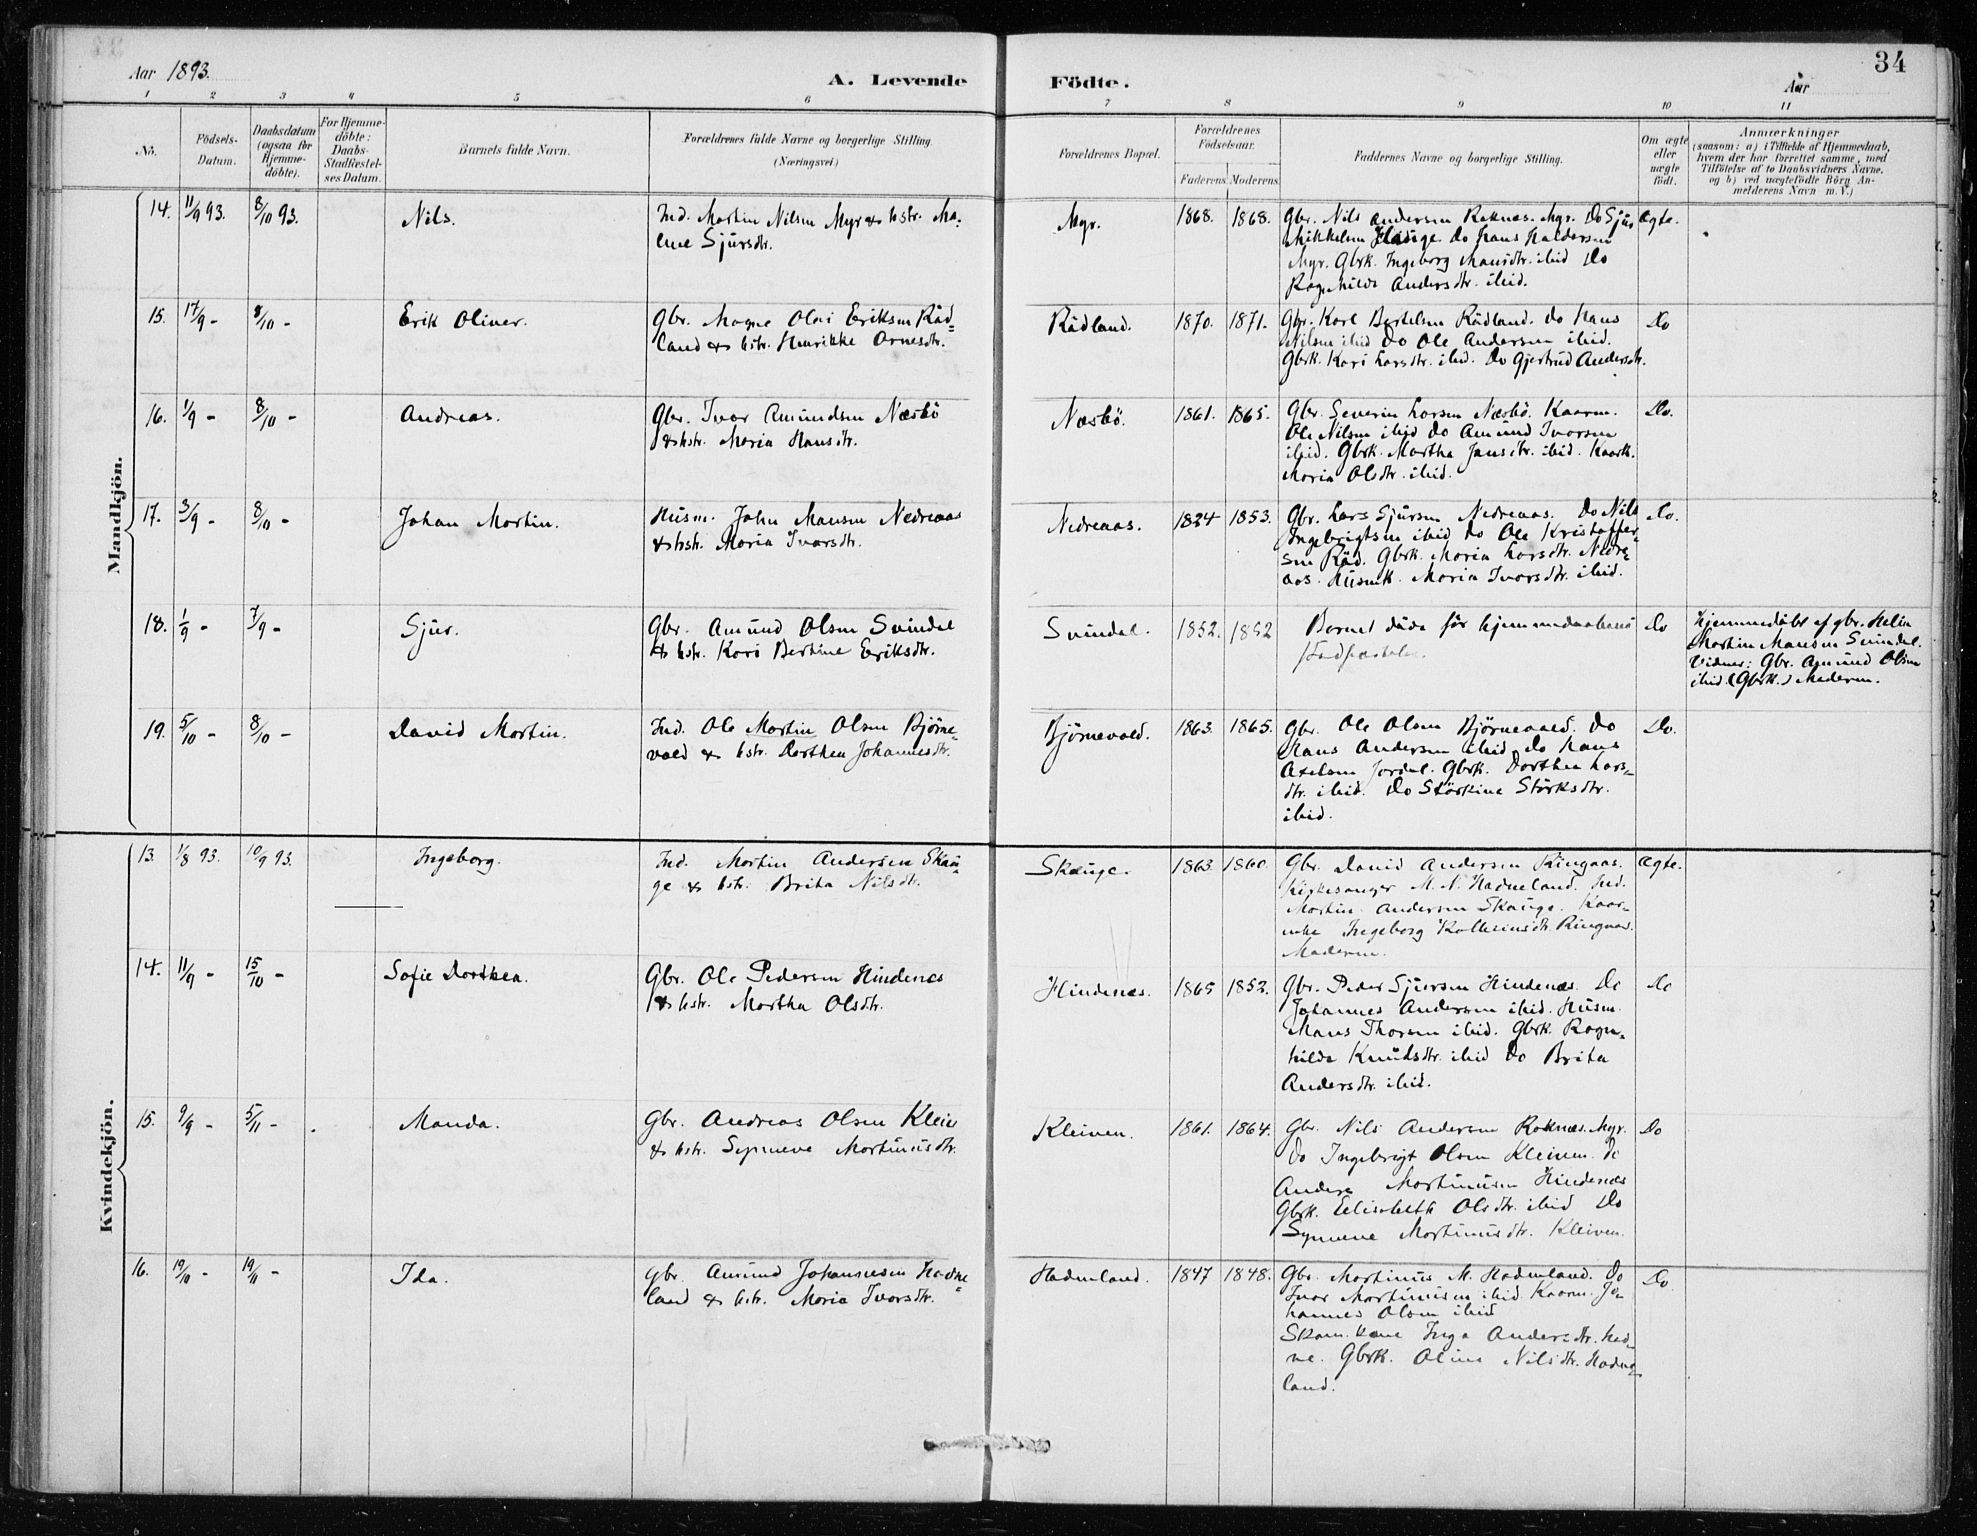 34
Aar 1893.
A. Levende Födte.
Aar
1 2 3 4 5 6 7 8 9 10 11
No.
Födsels-
Datum.
Daabsdatum
(ogsaa for
Hjemme-
döbte).
For Hjemme-
döbte:
Daabs-
Stadfestel-
ses Datum.
Barnets fulde Navn.
Forældrenes fulde Navne og borgerlige Stilling.
(Næringsvei)
Forældrenes Bopæl.
Forældrenes
Födselsaar.
Faderens. Moderens.
Faddernes Navne og borgerlige Stilling.
Om ægte
eller
uægte
født.
Anmærkninger
(saasom: a) i Tilfælde af Hjemmedaab,
hvem der har forrettet samme, med
Tilföielse af to Daabsvidners Navne.
og b) ved uægtefödte Börn An-
melderens Navn m. V.)
Mandkjön.
14. 11/9 93. 8/10 93. Nils.
Ind. Martin Nilsen Myr & hstr. Ma-
lene Sjursdtr.
Myr. 1868. 1868.
Gbr. Nils Andersen Roknes. Myr. Do Sjur
Mikkelsen Hauge. Do Hans Haldorsen
Myr. Gbrk. Ingeborg Mansdtr. ibid Do
Ragnhilda Andersdtr. ibid.
Ægte.
15. 17/9 - 8/10 - Erik Oliver.
Gbr. Mogne Olai Eriksen Råd-
land & hstr. Henrikke Arnesdtr.
Rådland. 1870. 1871.
Gbr. Karl Bertelsen Rådland. Do Hans
Nilsen ibid Do Ole Andersen ibid.
Gbrk. Kari Larsdtr. ibid. Do Gjertrud Andersdtr.
Do
16. 1/9 - 8/10 - Andreas.
Gbr. Ivar Amundsen Næsbö
& hstr. Maria Hansdtr.
Næsbö. 1861. 1865.
Gbr. Severin Larsen Næsbö. Kaarm.
Ole Nilsen ibid Do Amund Ivarsen
ibid. Gbrk. Martha Jansdtr. ibid. Kaark.
Maria Olsdtr. ibid.
Do.
17. 3/9 - 8/10 - Johan Martin.
Husm. John Mansen Nedreaas
& hstr. Maria Ivarsdtr.
Nedreaas. 1824 1853.
Gbr. Lars Sjursen Nedreaas. Do Nils
Ingebrigtsen ibid Do Ole Kristoffer-
sen Råd. Gbrk. Maria Larsdtr. Nedre-
aas. Husmk. Maria Ivarsdtr. ibid.
Do.
18. 1/9 - 7/9 - Sjur.
Gbr. Amund Olsen Svindal
& hstr. Kari Bertine Eriksdtr.
Svindal. 1852. 1852
Barnet døde för hjemmedaabens
Do
Hjemmedöbt af gbr. Helin
Martin Mansen Svindal.
Vidner: Gbr. Amund Olsen
ibid. (Gbrk.) Moderen.
19. 5/10 - 8/10 - David Martin.
Ind. Ole Martin Olsen Bjørne-
vald & hstr. Dorthea Johannesdtr.
Bjørnevald. 1863. 1865.
Gbr. Ole Olsen Bjørnevald. Do
Hans Andersen ibid Do Hans
Axelsen Jordal. Gbrk. Dorthea Lars-
dtr. ibid. Do Störkine Störksdtr.
ibid.
Do.
Kvindekjön.
13. 1/8 93. 10/9 93. Ingeborg.
Ind. Martin Andersen Skau-
ge & hstr. Brita Nilsdtr.
Skauge. 1863 1860.
Gbr. David Andersen Ringaas.
Kirkesanger M. N. Hadneland. Ind.
Martin Andersen Skauge. Kaar-
enke Ingeborg Ringaas.
Moderen.
Ægte.
14. 11/9 - 15/10 - Sofie Dorthea.
Gbr. Ole Pedersen Hindenes
& hstr. Martha Olsdtr.
Hindenes. 1865 1852.
Gbr. Peder Sjursen Hindenæs. Do
Johannes Andersen ibid. Husm.
Mans Thorsen ibid. Gbrk. Ragn-
hilda Knudsdtr. ibid Do Brita
Andersdtr. ibid.
Do
15. 9/9 - 5/11 - Manda.
Gbr. Andreas Olsen Kleiv
& hstr. Synneve Martinusdtr.
Kleiven. 1861. 1864.
Gbr. Nils Andersen Roknes. Myr.
Do Ingebrigt Olsen Kleiven. Do
Anders Martinusen Hindenæs
Gbrk. Elisabeth Olsdtr. ibid Do
Synneve Martinusdtr. Kleiven.
Do
16. 19/10 - 19/11 - Ida.
Gbr. Amund Johannesen Hadne-
land & hstr. Maria Ivarsdtr.
Hadneland. 1847 1848.
Gbr. Martinus M. Hadneland. Do
Ivar Martinusen ibid. Kaarm. Jo-
hannes Olsen ibid
Inga Andersdtr. Had-
ne. Gbrk. Oline Nilsdtr. Hadne-
land.
Do.